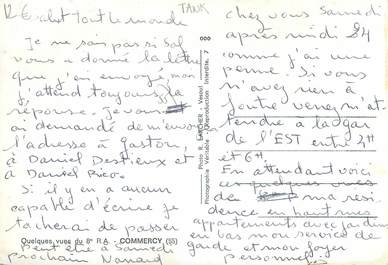 Salut Tout le monde
TANK
Je ne sais pas si Sol
vous a donné la lettre
que j'ai envoyé, mon
j'attend toujours la
réponse. Je vous
ai demandé de m'envoyer
l'adresse à gaston,
à Daniel Destieux et
à Daniel Rico.
Si il y en a aucun
capable d'écrire je
tacherai de passer
Quelques vues du 8e R.A. - COMMERCY (55)
peut être à Samedi
prochain Nanard
000
Photo R. LARCHER - Vesoul
Photographie Véritable - Reproduction Interdite. 7
chez vous Samedi
après midi 24
comme j'ai une
perme si vous
n'avez rien à
foutre venez m'at-
tendre à la gar
de l'EST entre 4H
et 6H
En attendant voici
ces quelques vues
de ma rési
dence en haut mes
appartements avec jardin
en bas mon service de
garde et mon foyer
personnel